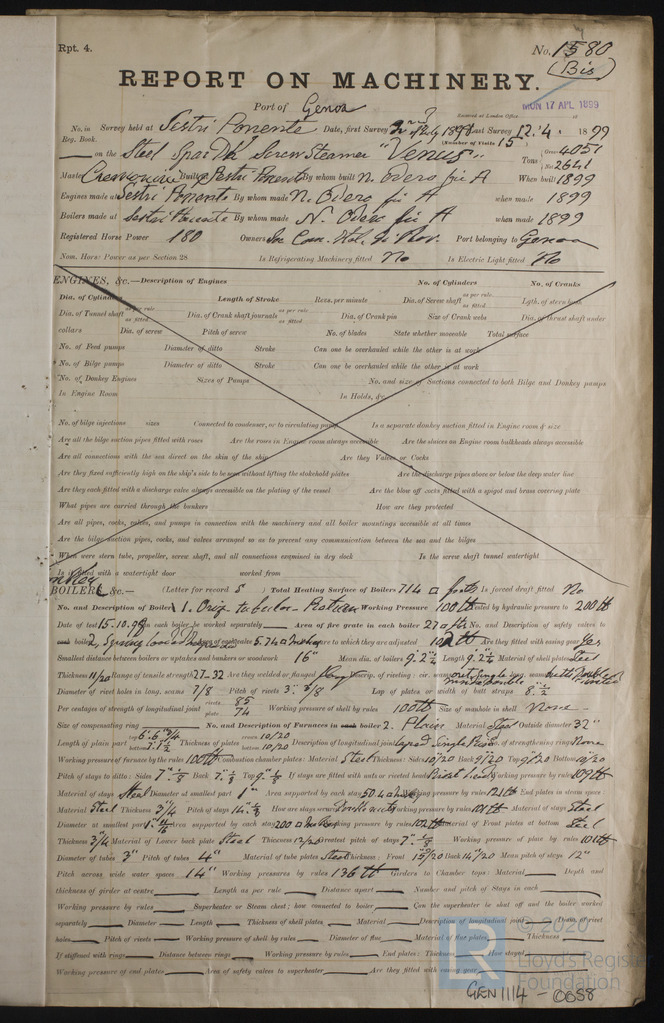 Rpt. 4.
No. 1580
(Bis)
REPORT ON MACHINERY.
Port of Genoa
Received at London Office
MON 17 APL 1899
No. in Survey held at Sestri Ponente Date, first Survey July 1898 Last Survey 12.4. 1899
Reg. Book. (Number of Visits 15)
on the Steel Spar Dk Screw Steamer "Venus" Tons Gross 4051
Net 2641
Master Built at Sestri Ponente By whom built N. Odero fu A When built 1899
Engines made at Sestri Ponente By whom made N. Odero fu A when made 1899
Boilers made at Sestri Ponente By whom made N. Odero fu A when made 1899
Registered Horse Power 180 Owners Port belonging to Genoa
Nom. Horse Power as per Section 28 Is Refrigerating Machinery fitted No Is Electric Light fitted No
ENGINES, &c.—Description of Engines No. of Cylinders No. of Cranks
Dia. of Cylinders Length of Stroke Revs. per minute Dia. of Screw shaft as per rule as fitted Lgth. of stern bush
Dia. of Tunnel shaft as per rule as fitted Dia. of Crank shaft journals as per rule as fitted Dia. of Crank pin Size of Crank webs Dia. of thrust shaft under
collars Dia. of screw Pitch of screw No. of blades State whether moveable Total surface
No. of Feed pumps Diameter of ditto Stroke Can one be overhauled while the other is at work
No. of Bilge pumps Diameter of ditto Stroke Can one be overhauled while the other is at work
No. of Donkey Engines Sizes of Pumps No. and size of Suctions connected to both Bilge and Donkey pumps
In Engine Room In Holds, &c.
No. of bilge injections sizes Connected to condenser, or to circulating pump Is a separate donkey suction fitted in Engine room & size
Are all the bilge suction pipes fitted with roses Are the roses in Engine room always accessible Are the sluices on Engine room bulkheads always accessible
Are all connections with the sea direct on the skin of the ship Are they Valves or Cocks
Are they fixed sufficiently high on the ship's side to be seen without lifting the stokehold plates Are the discharge pipes above or below the deep water line
Are they each fitted with a discharge valve always accessible on the plating of the vessel Are the blow off cocks fitted with a spigot and brass covering plate
What pipes are carried through the bunkers How are they protected
Are all pipes, cocks, valves, and pumps in connection with the machinery and all boiler mountings accessible at all times
Are the bilge suction pipes, cocks, and valves arranged so as to prevent any communication between the sea and the bilges
When were stern tube, propeller, screw shaft, and all connections examined in dry dock Is the screw shaft tunnel watertight
Is it fitted with a watertight door worked from
BOILERS, &c.— (Letter for record S) Total Heating Surface of Boilers 714 □ foots Is forced draft fitted No
No. and Description of Boilers 1. Oriz. tubular - Return Working Pressure 100 lb tested by hydraulic pressure to 200 lb
Date of test 15.10.98 Can each boiler be worked separately Area of fire grate in each boiler 27 □ ft No. and Description of safety valves to
each boiler 2, Spring loaded Area of each valve 5.74 □ Inches Pressure to which they are adjusted 102 lb Are they fitted with easing gear Yes
Smallest distance between boilers or uptakes and bunkers or woodwork 16" Mean dia. of boilers 9'.2½" Length 9'.2½" Material of shell plates Steel
Thickness 11/20 Range of tensile strength 27-32 Are they welded or flanged Descrip. of riveting: cir. seams long. seams
Diameter of rivet holes in long. seams 7/8 Pitch of rivets 3" 3/8 Lap of plates or width of butt straps 8.½
Per centages of strength of longitudinal joint rivets 85 plate 74 Working pressure of shell by rules 100 lb Size of manhole in shell None
Size of compensating ring No. and Description of Furnaces in each boiler 2. Plain Material Steel Outside diameter 32"
Length of plain part top 6'.6"¾ bottom Thickness of plates crown 10/20 bottom 10/20 Description of longitudinal joint Laped Single Rived No. of strengthening rings None
Working pressure of furnace by the rules 100 lb Combustion chamber plates: Material Steel Thickness: Sides 10/20 Back 9/20 Top 9/20 Bottom 10/20
Pitch of stays to ditto: Sides Back Top If stays are fitted with nuts or riveted heads Working pressure by rules 109 lb
Material of stays Steel Diameter at smallest part 1" Area supported by each stay 50.4 □ Working pressure by rules 121 lb End plates in steam space:
Material Steel Thickness ¾ Pitch of stays How are stays secured Double nuts Working pressure by rules 101 lb Material of stays Steel
Diameter at smallest part Area supported by each stay 200 □ Inches Working pressure by rules 102 lb Material of Front plates at bottom Steel
Thickness ¾ Material of Lower back plate Steel Thickness 12/20 Greatest pitch of stays Working pressure of plate by rules
Diameter of tubes 3" Pitch of tubes 4" Material of tube plates Steel Thickness: Front 15/20 Back 14/20 Mean pitch of stays 12"
Pitch across wide water spaces 14" Working pressures by rules 136 lb Girders to Chamber tops: Material Depth and
thickness of girder at centre Length as per rule Distance apart Number and pitch of Stays in each
Working pressure by rules Superheater or Steam chest; how connected to boiler Can the superheater be shut off and the boiler worked
separately Diameter Length Thickness of shell plates Material Description of longitudinal joint Diam. of rivet
holes Pitch of rivets Working pressure of shell by rules Diameter of flue Material of flue plates Thickness
If stiffened with rings Distance between rings Working pressure by rules End plates: Thickness How stayed
Working pressure of end plates Area of safety valves to superheater Are they fitted with easing gear
© 2020
Lloyd's Register
Foundation
GEN1114 - 0058